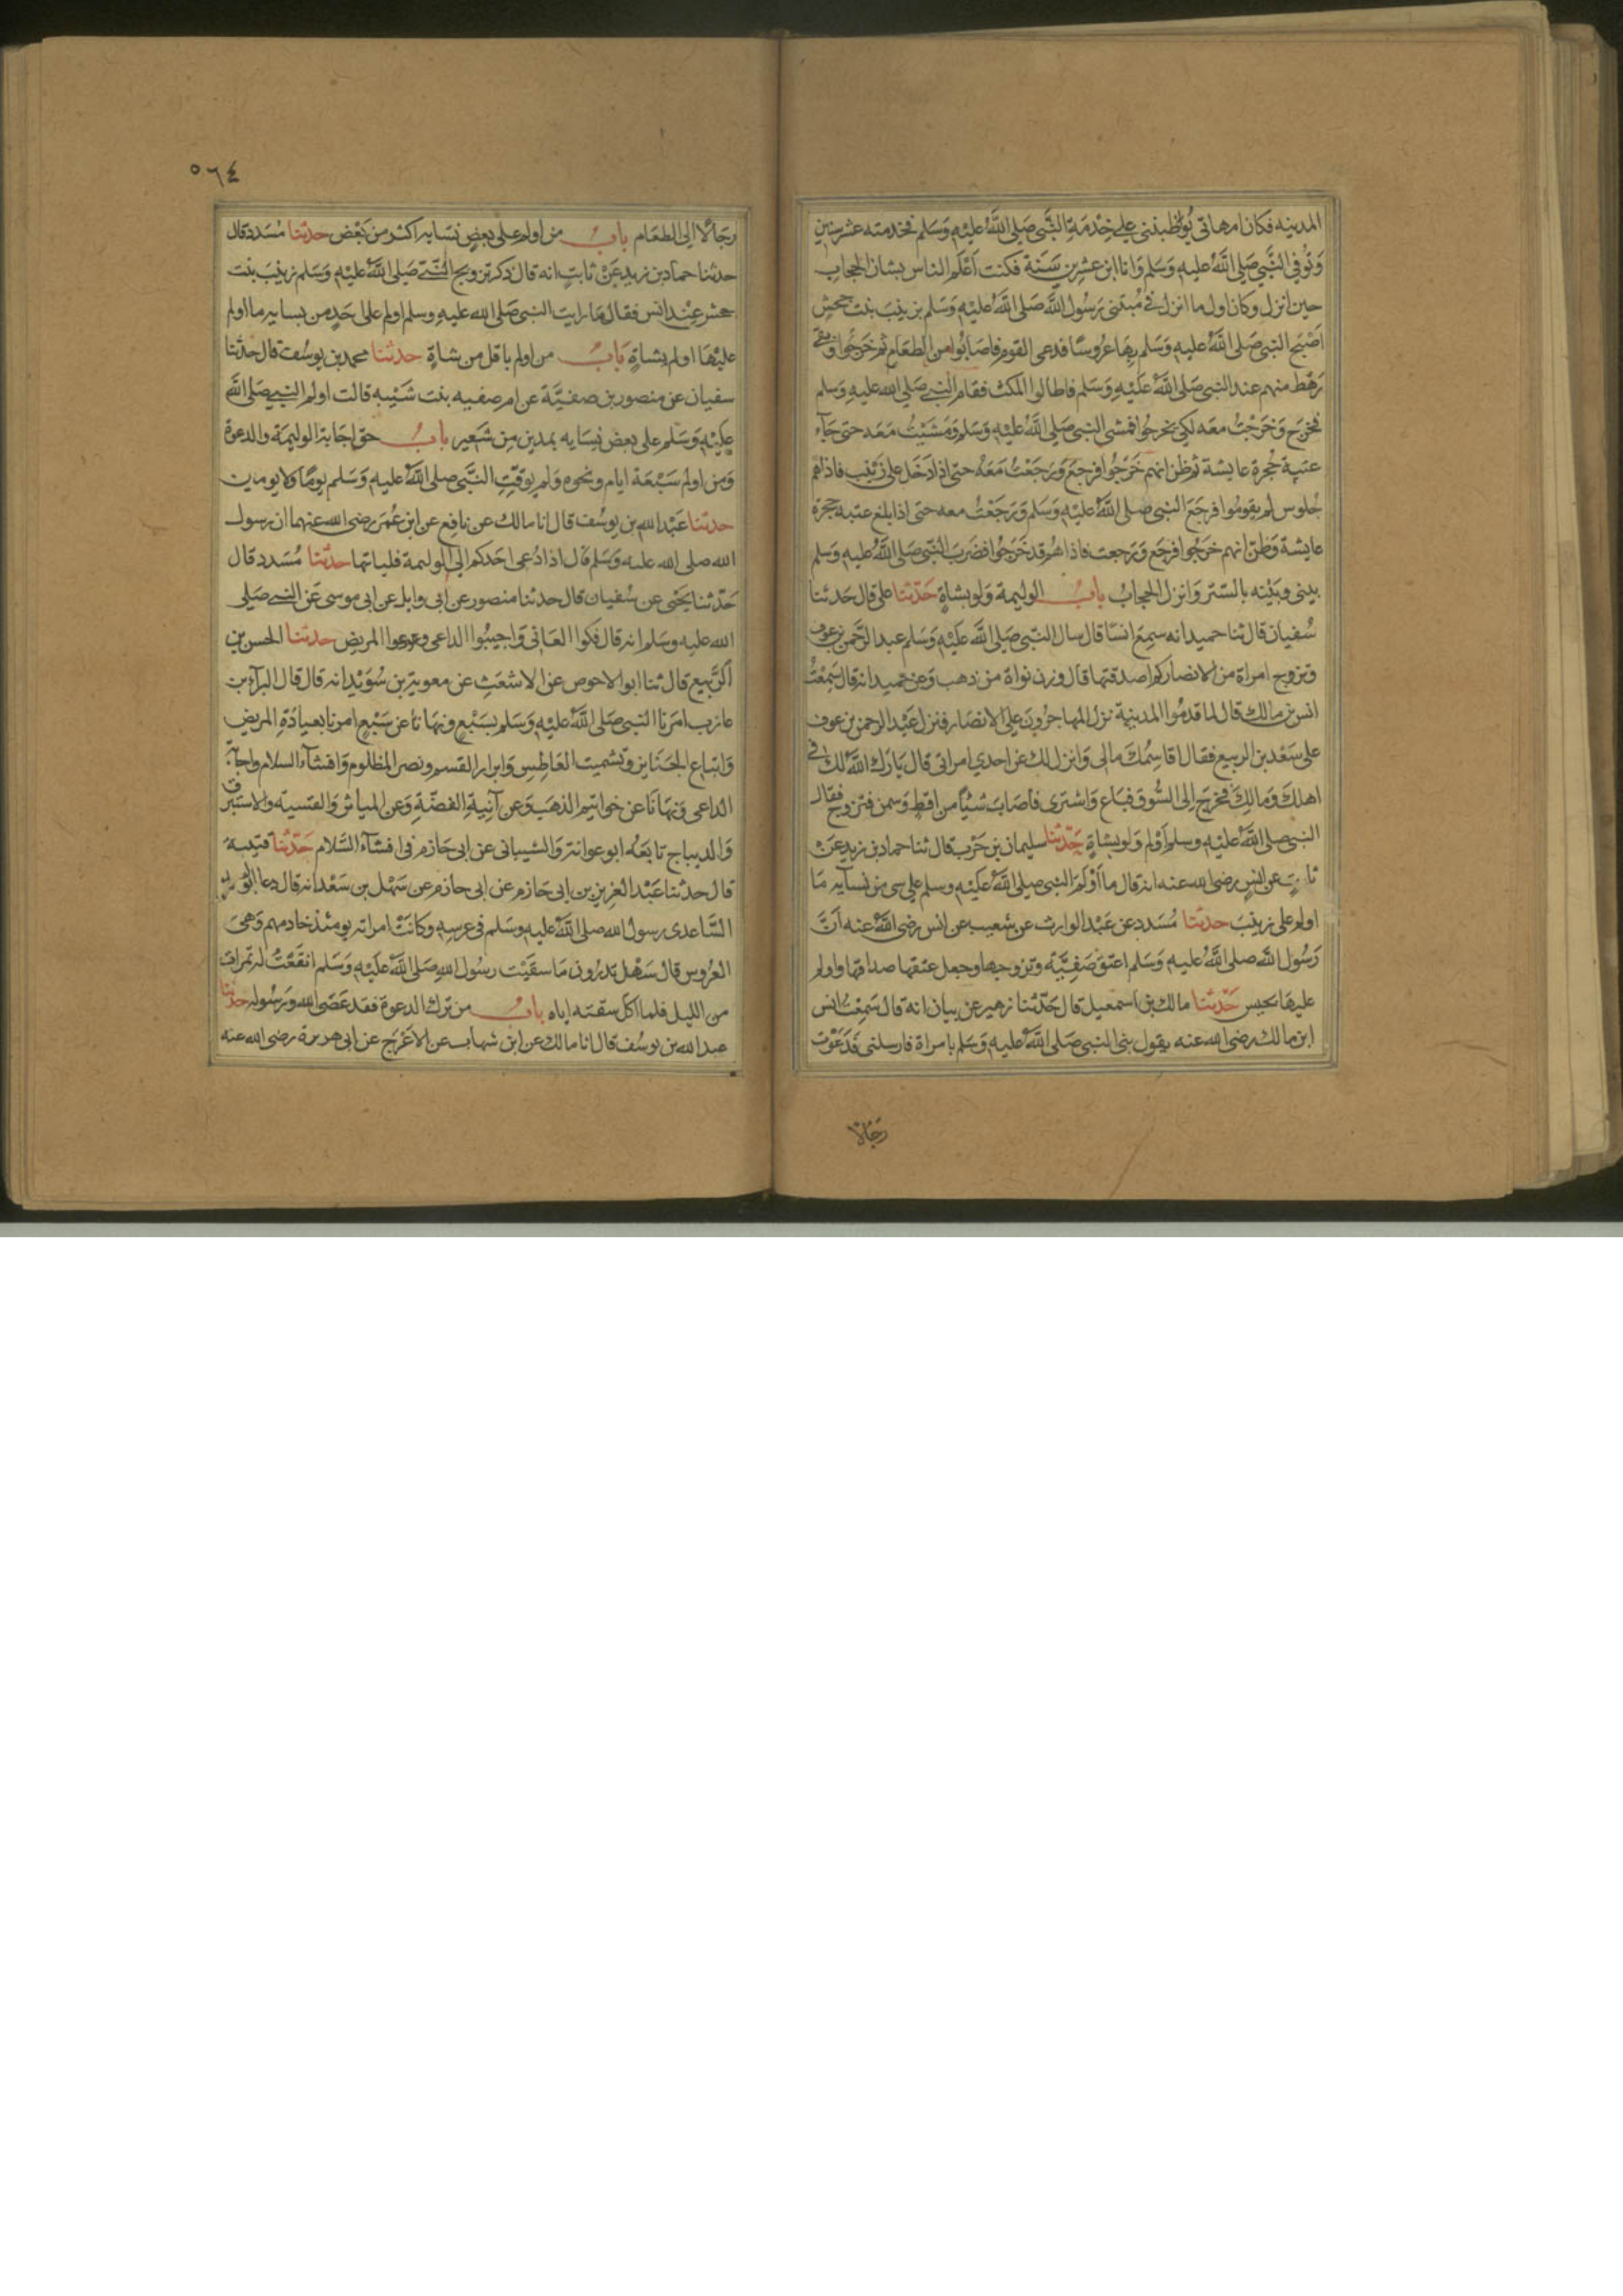 المدينه فكان امهاتي يواظبنني على خِدْمَةِ النَّبي صَلى اللَّهُ عليْهِ وَسَلم فخدمته عشر سنين
وَتُوفي النَّبي صَلى اللَّهُ عليهِ وَسَلم وَانا ابن عشرين سَنَة فكنت اَعْلم الناس بشان الحجاب
حين انزل وكان اول ما انزل في مُبتنى رَسُول اللَّه صَلى اللَّهُ عليْهِ وَسَلم بزينب بنت جحش
اَصْبَح النبي صَلى اللَّهُ عليه وَسَلم بِهَا عَرُوسًا فدعى القوم فاصَابُوا من الطعَام ثم خَرَجُوا وبقي
رَهْط منهم عند النبي صَلى اللَّهُ عَليْهِ وَسَلم فاطالوا المكث فقام النبي صَلى الله عليهِ وَسلم
فخرَج وَخرَجْتُ معَه لكي يخرجُوا فمشى النبي صَلى اللَّهُ عليْهِ وَسَلم وَمَشَيْتُ مَعَه حتى جَآء
عتبة حُجرة عايشة ثم ظن انهم خَرَجُوا فرجعَ وَرَجَعْتُ مَعَهُ حتى اذا دَخَل على زينب فاذا هم
جُلوس لم يقومُوا فرجَعَ النبي صَلى اللَّهُ عليْهِ وَسَلم وَرَجَعْتُ معه حتى اذا بلغ عتبة حجرة
عايشة وَظن انهم خرَجُوا فرجَع وَرَجعت فاذا هُم قد خَرَجُوا فضَربَ النَّبي صَلى اللَّهُ عليهِ وَسَلم
بيني وبَيْنه بالستر وَانزل الحجابُ بابُ الوليمة وَلو بشاةٍ حَدّثنا علي قال حَدثنا
سُفيان قال ثنا حميد انه سمِعَ انسًا قال سال النبي صَلى اللَّه عَليْهِ وَسَلم عبد الرَّحمن بن عوف
وتزوج امراة من الانصار كم اصدقتها قال وزن نواة من ذهب وَعن حميد انه قال سَمِعْتُ
انس بن مالك قال لما قدمُوا المدينة نزل المهاجرُونَ على الانصَار فنزل عَبْد الرحمن بن عوف
على سَعْد بن الربيع فقال اقاسِمُكَ مالي وَانزل لك عن احدي امراتي قال بَارَك اللَّه لك في
اهلكَ وَمالِكَ فخرجَ إلى السُّوق فبَاع وَاشترى فاصَابَ شيئًا من اقِطٍ وَسمن فتزوج فقال
النبي صلى اللَّهُ عليْهِ وسلم اَوْلم وَلو بشاةٍ حَدّثنا سليمان بن حَرْب قال ثنا حماد بن زيد عَن
ثابتٍ عن انسٍ رضي الله عنه انه قال ما اَوْلَمَ النبي صلى اللَّهُ عَليْهِ وسلم على شي من نسآيه مَا
اولم على زينبَ حدثنا مُسَدد عن عَبْد الوارث عن شعيب عن انس رضي اللَّهُ عنه اَنَّ
رَسُول اللَّه صلى اللَّهُ عليهِ وَسَلم اعتق صَفيَّة وتزوجها وجعل عتقها صداقها واولم
عليهَا بحيس حَدّثنا مالك بن اسمعيل قال حَدّثنا زهير عن بيان انه قال سَمِعْتُ انس
ابن مالك رضي الله عنه يقول بنى النبي صَلى اللَّهُ عليهِ وَسَلم بامراة فارسلني فَدَعَوْت
رجَالا
٥٦٤
رجَالًا الى الطعَام بابُ من اولم على بعضِ نسَايه اكثر من بَعْض حدثنا مُسَدد قال
حدثنا حماد بن زيد عَنْ ثابتٍ انه قال ذكر تزويج النَّبي صَلى اللَّهُ عليْهِ وَسَلم زينبَ بنت
جحش عِنْد انس فقال مَا رايت النبي صَلى الله عليهِ وسلم اولم على احَدٍ من نسايه ما اولم
عليْهَا اولم بشاةٍ بَابُ من اولم باقل من شاةٍ حدثنا محمد بن يوسُف قال حدثنا
سفيان عن منصور بن صفيَّة عن امه صفيه بنت شَيْبه قالت اولم النبي صَلى اللَّه
عليْهِ وَسَلم على بعض نِسَايه بمدين مِن شَعِير بابُ حق اجَابة الوليمَة والدعوة
وَمن اولم سَبْعَة ايام ونحوه وَلم يوقِّتِ النَّبي صلى اللَّهُ عليهِ وَسَلم يومًا ولا يومين
حدثنا عَبْد الله بن يوسُف قال انا مالك عن نافِع عن ابن عُمَرَ رضي الله عنهما ان رسول
الله صلى الله عليه وَسَلم قال اذا دُعى احَدكم الى الوليمة فلياتها حدثنا مُسَدد قال
حَدّثنا يَحْيى عن سُفيان قال حدثنا منصور عن ابي وايل عن ابي موسى عَن النبي صَلى
الله عليهِ وسَلم انه قال فكوا العَاني وَاجيبُوا الداعي وعودوا المريض حدثنا الحسن بن
الرَّبيع قال ثنا ابو الاحوص عن الاشعَث عن معوية بن سُوَيْد انه قال قال البرآء بن
عازب امَرَنا النبي صَلى اللَّهُ عليْهِ وَسَلم بسَبْعٍ ونهَانا عن سَبْعٍ امرنا بعيادَةِ المريض
وَاتبَاع الجنَايز وتشميت العَاطِس وَابرار القسم ونصر المظلوم وَافشآء السلام واجابة
الداعى وَنهَانَا عن خواتيم الذهَب وَعن آنِيةِ الفضّةِ وَعن المياثر وَالقسية والاستبرق
وَالديباج تابَعَه ابو عوانة وَالشيباني عن ابي حَازم في افشآء السَّلام حَدّثنا قتيبة
قال حدثنا عَبْد العَزيز بن ابي حَازم عن ابي حازم عن سَهْل بن سَعْد انه قال دعا ابو اسيد
السَّاعدى رسول الله صلى اللَّهُ عليهِ وسَلم في عرسِهِ وكانَتْ امراته يومئذ خادمهم وَهيَ
العَرُوس قال سَهْل تدرُون مَا سقَيَت رسُول اللهِ صَلى اللَّهُ عَليْهِ وَسَلم انقعَتْ له تمرات
من الليل فلما اكل سقته اياه بابُ من ترك الدعوة فقد عَصَى الله وَرسُوله حدثنا
عبد الله بن يوسُف قال انا مالك عن ابن شهاب عن الاعْرَج عن ابي هريرة رضي الله عنه